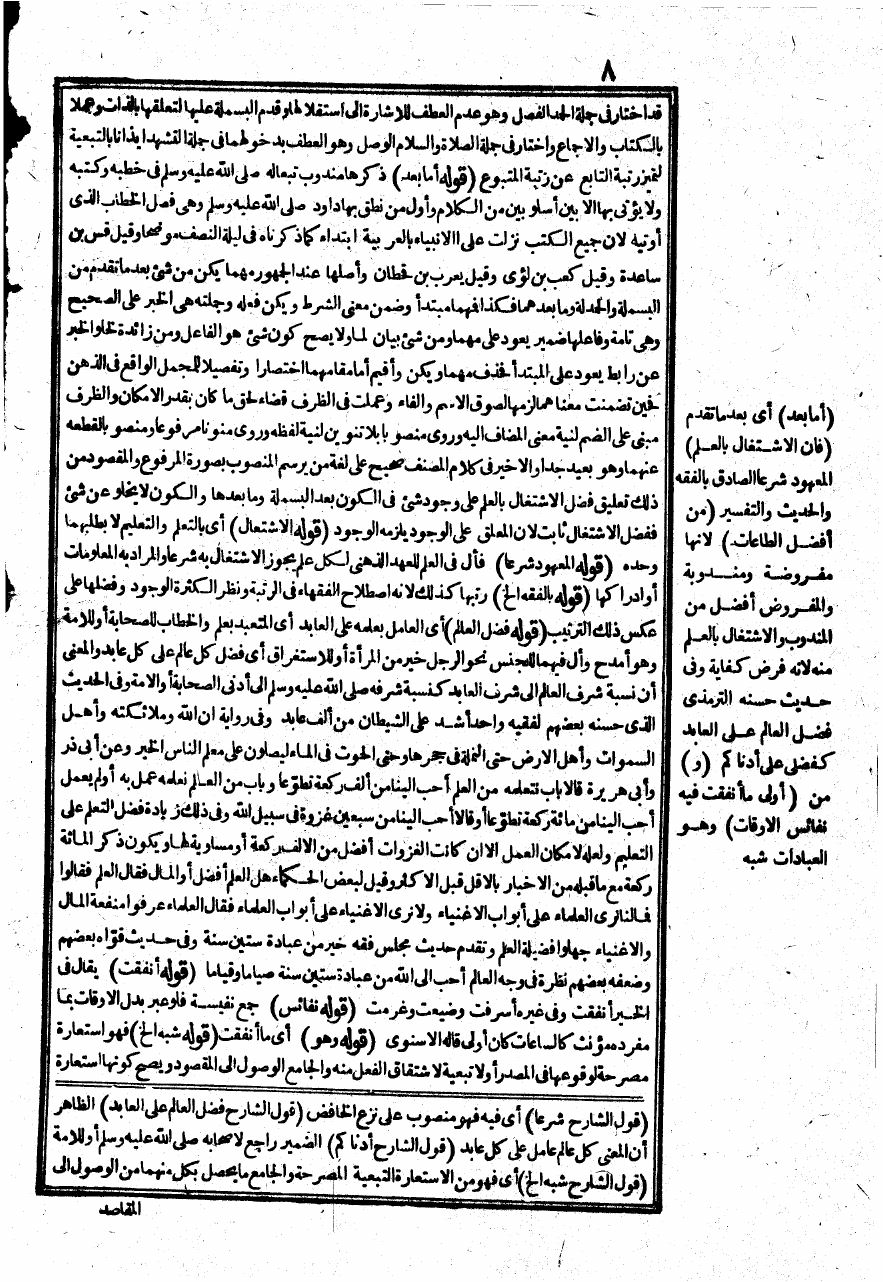 ٨
قد اختار فى جملة الحمد الفصل وهو عدم العطف للاشارة الى استقلالها وقدم البسملة عليها لتعلقها بالذات وعملا
بالكتاب والاجماع واختار فى جملة الصلاة والسلام الوصل وهو العطف بدخولهما فى جملة التشهد ايذانا بالتبعية
لتميز رتبة التابع عن رتبة المتبوع (قوله أما بعد) ذكرها مندوب تبعاله صلى الله عليه وسلم فى خطبه وكتبه
ولا يؤتى بها الا بين أسلوبين من الكلام وأول من نطق بها داود صلى الله عليه وسلم وهى فصل الخطاب الذى
أوتيه لان جميع الكتب نزلت على الانبياء بالعربية ابتداء كما ذكرناه فى ليلة النصف موضحا وقيل قس بن
ساعدة وقيل كعب بن لؤى وقيل يعرب بن قحطان وأصلها عند الجهور مهما يكن من شئ بعد ما تقدم من
البسملة والحمدلة وما بعدهما فكذا فهما مبتدأ وضمن معنى الشرط ويكن فعله وجملته هى الخبر على الصحيح
وهى تامة وفاعلها ضمير يعود على مهما ومن شئ بيان لما ولا يصح كون شئ هو الفاعل ومن زائدة لخلو الخبر
عن رابط يعود على المبتدأ فحذف مهما ويكن وأقيم أما مقامهما اختصارا وتفصيلا للمجمل الواقع فى الذهن
فحين تضمنت معناهما لزمها لصوق الاسم والفاء وعملت فى الظرف قضاء لحق ما كان بقدر الامكان والظرف
مبنى على الضم لنية معنى المضاف اليه وروى منصوبا بلا تنوين لنية لفظه وروى منونا مرفوعا ومنصوبا لقطعه
عنهما وهو بعيد جدا والاخير فى كلام المصنف صحيح على لغة من يرسم المنصوب بصورة المرفوع والمقصود من
ذلك تعليق فضل الاشتغال بالعلم على وجود شئ فى الكون بعد البسملة وما بعدها والكون لا يخلو عن شئ
ففضل الاشتغال ثابت لان المعلق على الوجود يلزمه الوجود (قوله الاشتغال) أى بالتعلم والتعليم لا بطلبهما
وحده (قوله المعهود شرعا) فأل فى العلم للعهد الذهنى لكل علم يجوز الاشتغال به شرعا والمراد به المعلومات
أو ادراكها (قوله بالفقه الخ) رتبها كذلك لانه اصطلاح الفقهاء فى الرتبة ونظر الكثرة الوجود وفضلها على
عكس ذلك الترتيب (قوله فضل العالم) أى العامل بعلمه على العابد أى المتعبد بعلم والخطاب للصحابة أو للامة
وهو أمدح وأل فيهما للجنس نحو الرجل خير من المرأة أو للاستغراق أى فضل كل عالم على كل عابد والمعنى
أن نسبة شرف العالم الى شرف العابد كنسبة شرفه صلى الله عليه وسلم الى أدنى الصحابة أو الامة وفى الحديث
الذى حسنه بعضهم لفقيه واحد أشد على الشيطان من ألف عابد وفى رواية ان الله وملائكته وأهل
السموات وأهل الارض حتى النملة فى جحرها وحتى الحوت فى الماء ليصلون على معلم الناس الخير وعن أبى ذر
وأبى هريرة قالا باب نتعلمه من العلم أحب الينا من ألف ركعة تطوعا وباب من العالم نعلمه عمل به أو لم يعمل
أحب الينا من مائة ركعة تطوعا أو قالا أحب الينا من سبعين غزوة فى سبيل الله وفى ذلك زيادة فضل التعلم على
التعليم ولعله لامكان العمل الا ان كانت الغزوات أفضل من الالف ركعة أو مساوية لها ويكون ذكر المائة
ركعة مع ما قبله من الاخبار بالاقل قبل الاكثر وقيل لبعض الحكماء هل العلم أفضل أو المال فقال العلم فقالوا
فمالنا نرى العلماء على أبواب الاغنياء ولا نرى الاغنياء على أبواب العلماء فقال العلماء عرفوا منفعة المال
والاغنياء جهلوا فضيلة العلم وتقدم حديث مجلس فقه خير من عبادة ستين سنة وفى حديث قواه بعضهم
وضعفه بعضهم نظرة فى وجه العالم أحب الى الله من عبادة ستين سنة صياما وقياما (قوله أنفقت) يقال فى
الخير أنفقت وفى غيره أسرفت وضيعت وغرمت (قوله نفائس) جمع نفيسة فلو عبر بدل الاوقات بما
مفرده مؤنث كالساعات كان أولى قاله الاسنوى (قوله وهو) أى ما أنفقت (قوله شبه الخ) فهو استعارة
مصرحة لوقوعها فى المصدر أولا تبعية لاشتقاق الفعل منه والجامع الوصول الى المقصود ويصح كونها استعارة
(أما بعد) أى بعد ما تقدم
(فان الاشتغال بالعلم)
المعهود شرعا الصادق بالفقه
والحديث والتفسير (من
أفضل الطاعات) لانها
مفروضة ومندوبة
والمفروض أفضل من
المندوب والاشتغال بالعلم
منه لانه فرض كفاية وفى
حديث حسنه الترمذى
فضل العالم على العابد
كفضلى على أدناكم (و)
من (أولى ما أنفقت فيه
نفائس الاوقات) وهو
العبادات شبه
(قول الشارح شرعا) أى فيه فهو منصوب على نزع الخافض (قول الشارح فضل العالم على العابد) الظاهر
أن المعنى كل عالم عامل على كل عابد (قول الشارح أدناكم) الضمير راجع لاصحابه صلى الله عليه وسلم أو للامة
(قول الشارح شبه الخ) أى فهو من الاستعارة التبعية المصرحة والجامع ما يحصل بكل منهما من الوصول الى
المقاصد